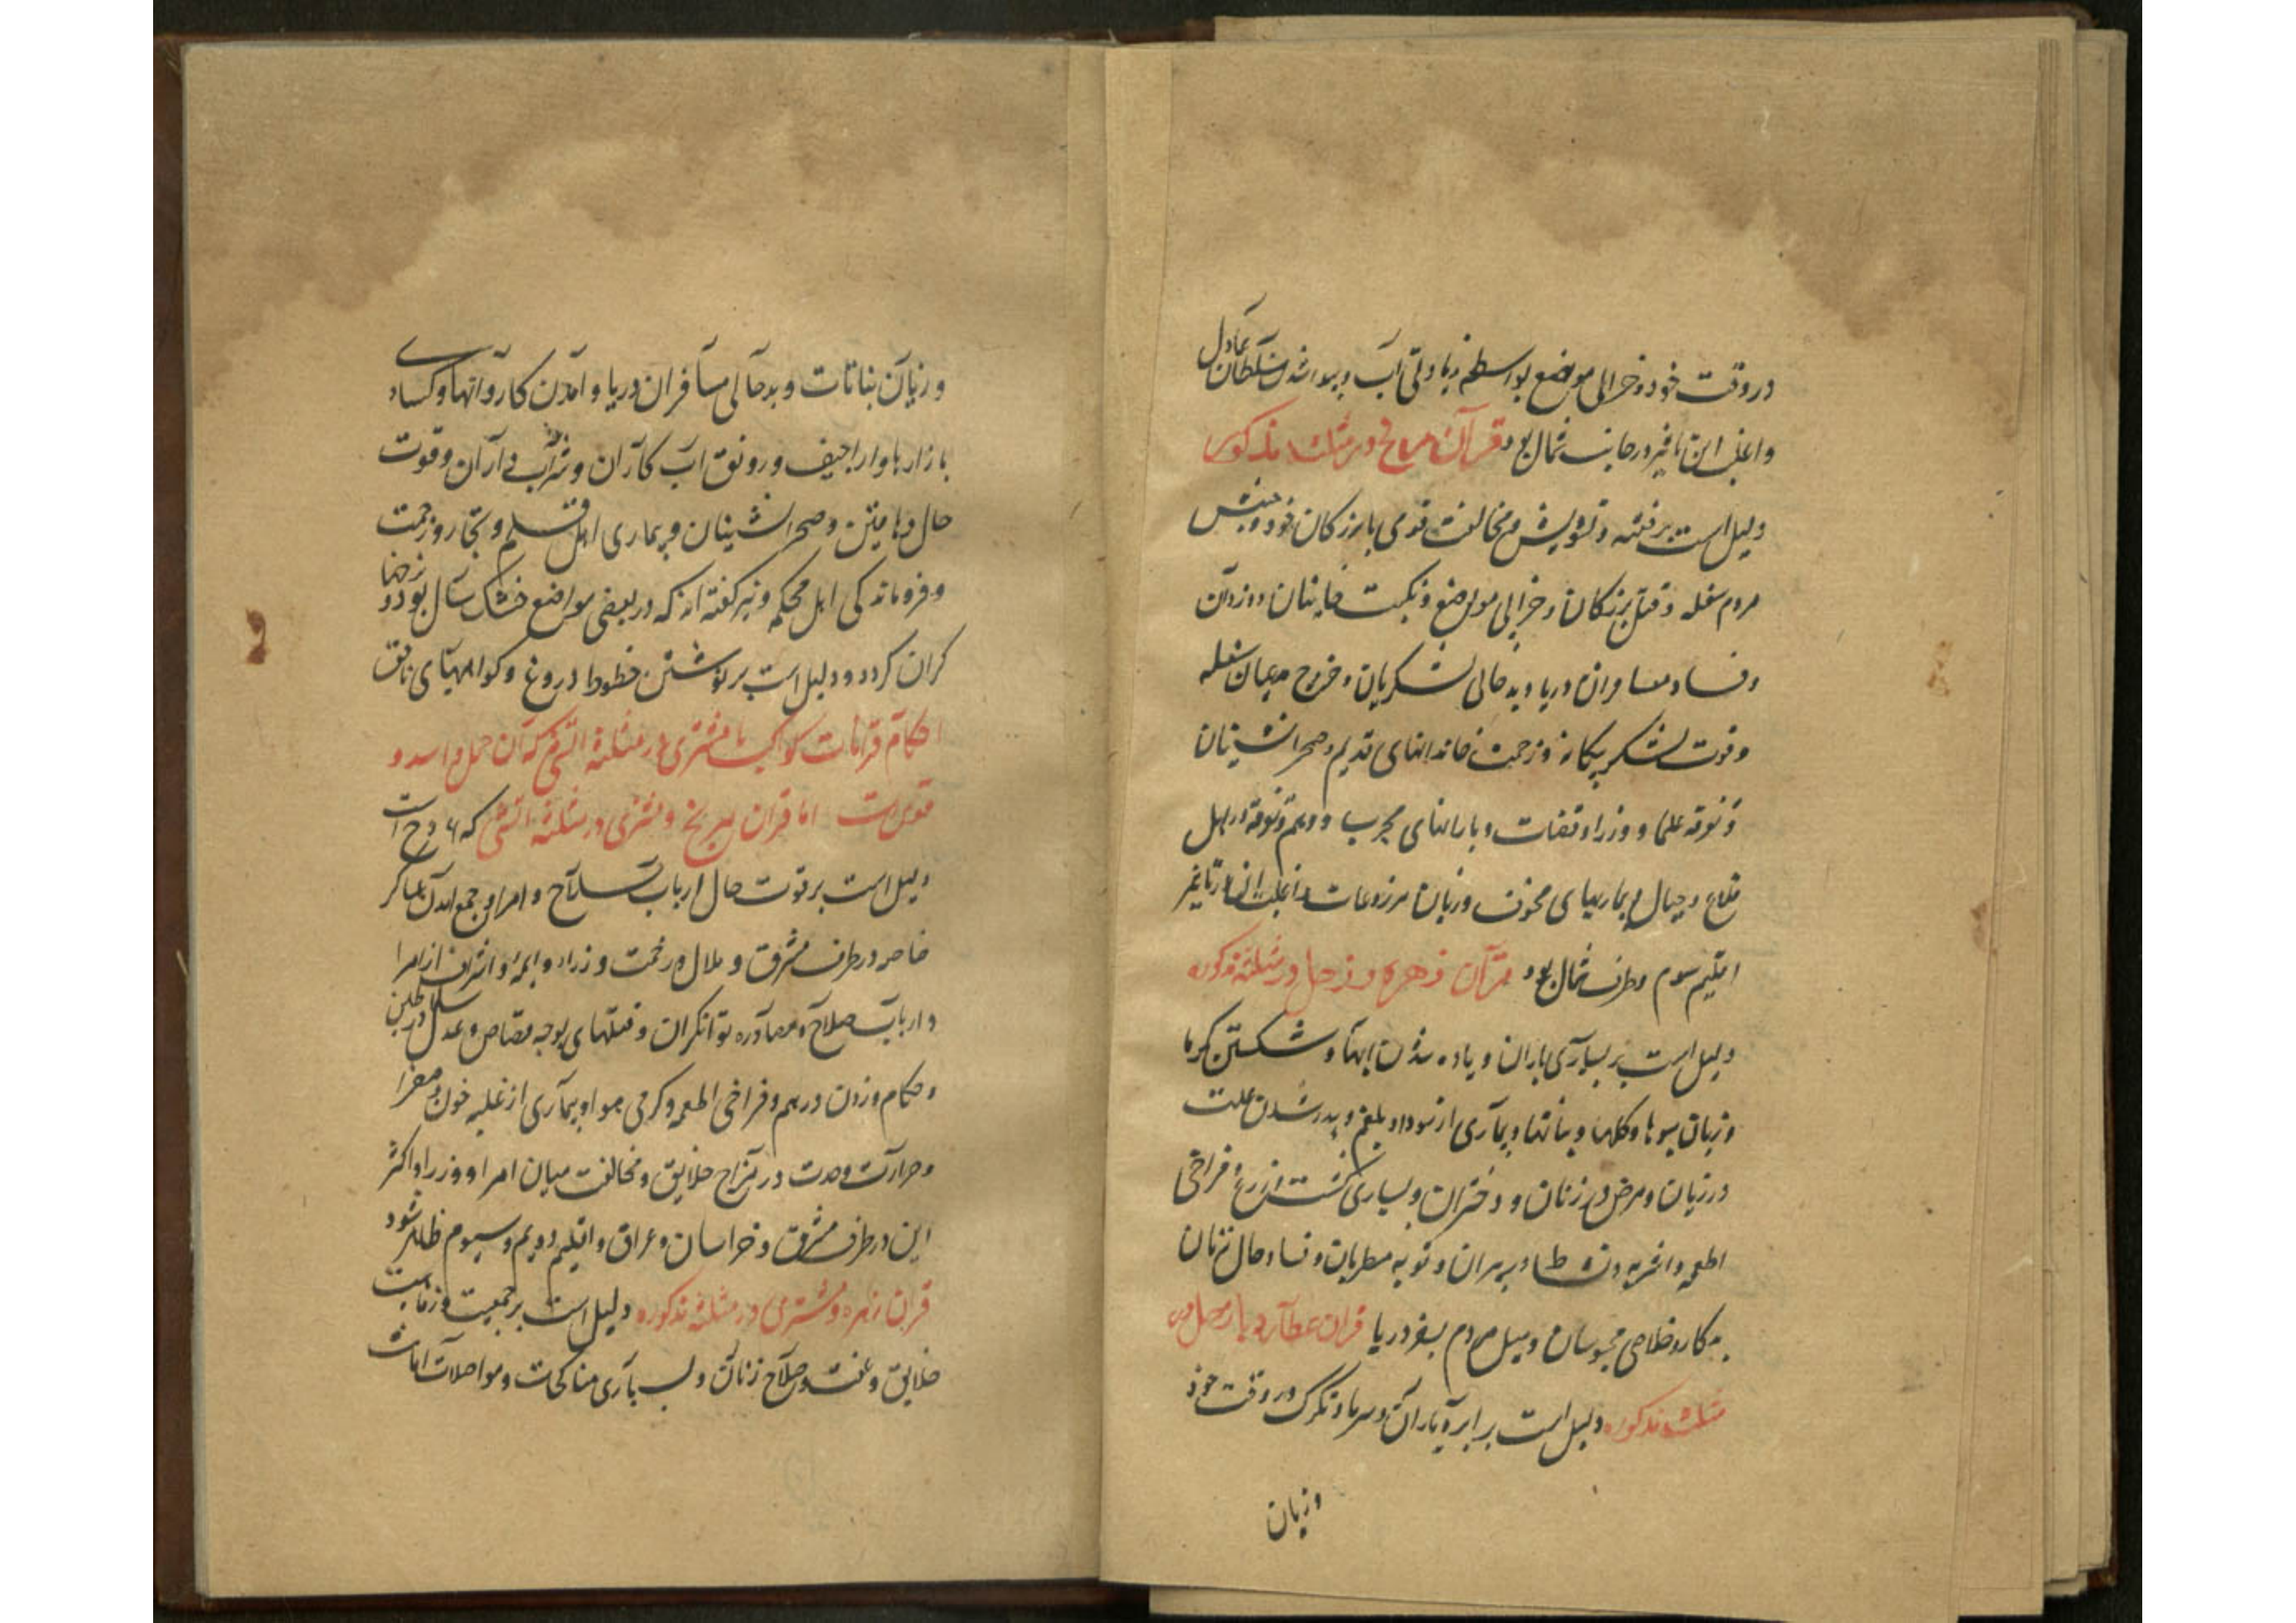 در وقت خود و خرابی مواضع بواسطه زیادتی آب و پیدا شدن سلطان عادل
و اغلب این تاثیر در جانب شمال بود قران مریخ در مثلثه مذکوره
دلیل است بر فتنه و تشویش و مخالفت قومی با بزرگان خود و جنبش
مردم سفله و قتل بزرگان و خرابی مواضع و نکبت خاینان و دزدان
و فساد مسافران دریا و بدحالی لشکریان و خروج مدعیان سفله
و قوت لشکر بیگانه و زحمت خاندانهای قدیم و صحرانشینان
و تفرقه علما و وزرا و قضات و بارانهای مخرب و وهم و تفرقه در اهل
قلاع و جبال و بیماریهای مخوف و زیان مزروعات و اغلب این تاثیر
اقلیم سوم و طرف شمال بود قرآن زهره و زحل در مثلثه مذکوره
دلیل است بر بسیاری باران و زیاده شدن آبها و شکستن گرما
و زیان میوها و گلها و نباتها و بیماری از سودا و بلغم و پدید شدن علت
در زیان و مرض در زنان و دختران و بسیاری کشت از زرع و فراخی
اطعمه و اشربه و نشاط پیران و توبه مطربان و فساد حال زنان
بدکار و خلاصی محبوسان و میل مردم بسفر دریا قران عطارد با زحل در
مثلثه مذکوره دلیل است بر ابر و باران و سرما و تگرگ در وقت خود
و زیان
و زیان بناتات و بدحالی مسافران دریا و آمدن کاروانها و کسادی
بازارها و اراجیف و رونق آب کاران و شراب داران و قوت
حال دهاقین و صحرانشینان و بیماری اهل قلم و تجار و زحمت
و فروماندگی اهل محکمه و نیز گفته اند که در بعضی مواضع خشک سال بود و نرخها
گران گردد و دلیل است بر نوشتن خطوط دروغ و گواهیهای ناحق
احکام قرانات کواکب با مشتری در مثلثه آتشی که آن حمل و اسد و
قوس است اما قران مریخ و مشتری در مثلثه آتشی که ء د ح است
دلیل است بر قوت حال ارباب سلاح و امرا و جمع آمدن عساکر
خاصه در طرف مشرق و ملال و زحمت وزرا و ایمه و اشراف از امرا
و ارباب صلاح و مصادره توانگران و قتلهای بوجه قصاص و عدل سلاطین
و حکام و زدن درهم و فراخی اطعمه و گرمی هوا و بیماری از غلبه خون و صفرا
و حرارت و حدت در مزاج خلایق و مخالفت میان امرا و وزرا و اکثر
این در طرف مشرق و خراسان و عراق و اقلیم دویم و سیوم ظاهر شود
قران زهره و مشتری در مثلثه مذکوره دلیل است بر جمعیت و رفاهیت
خلایق و عفت و صلاح زنان و بسیاری مناکحات و مواصلات